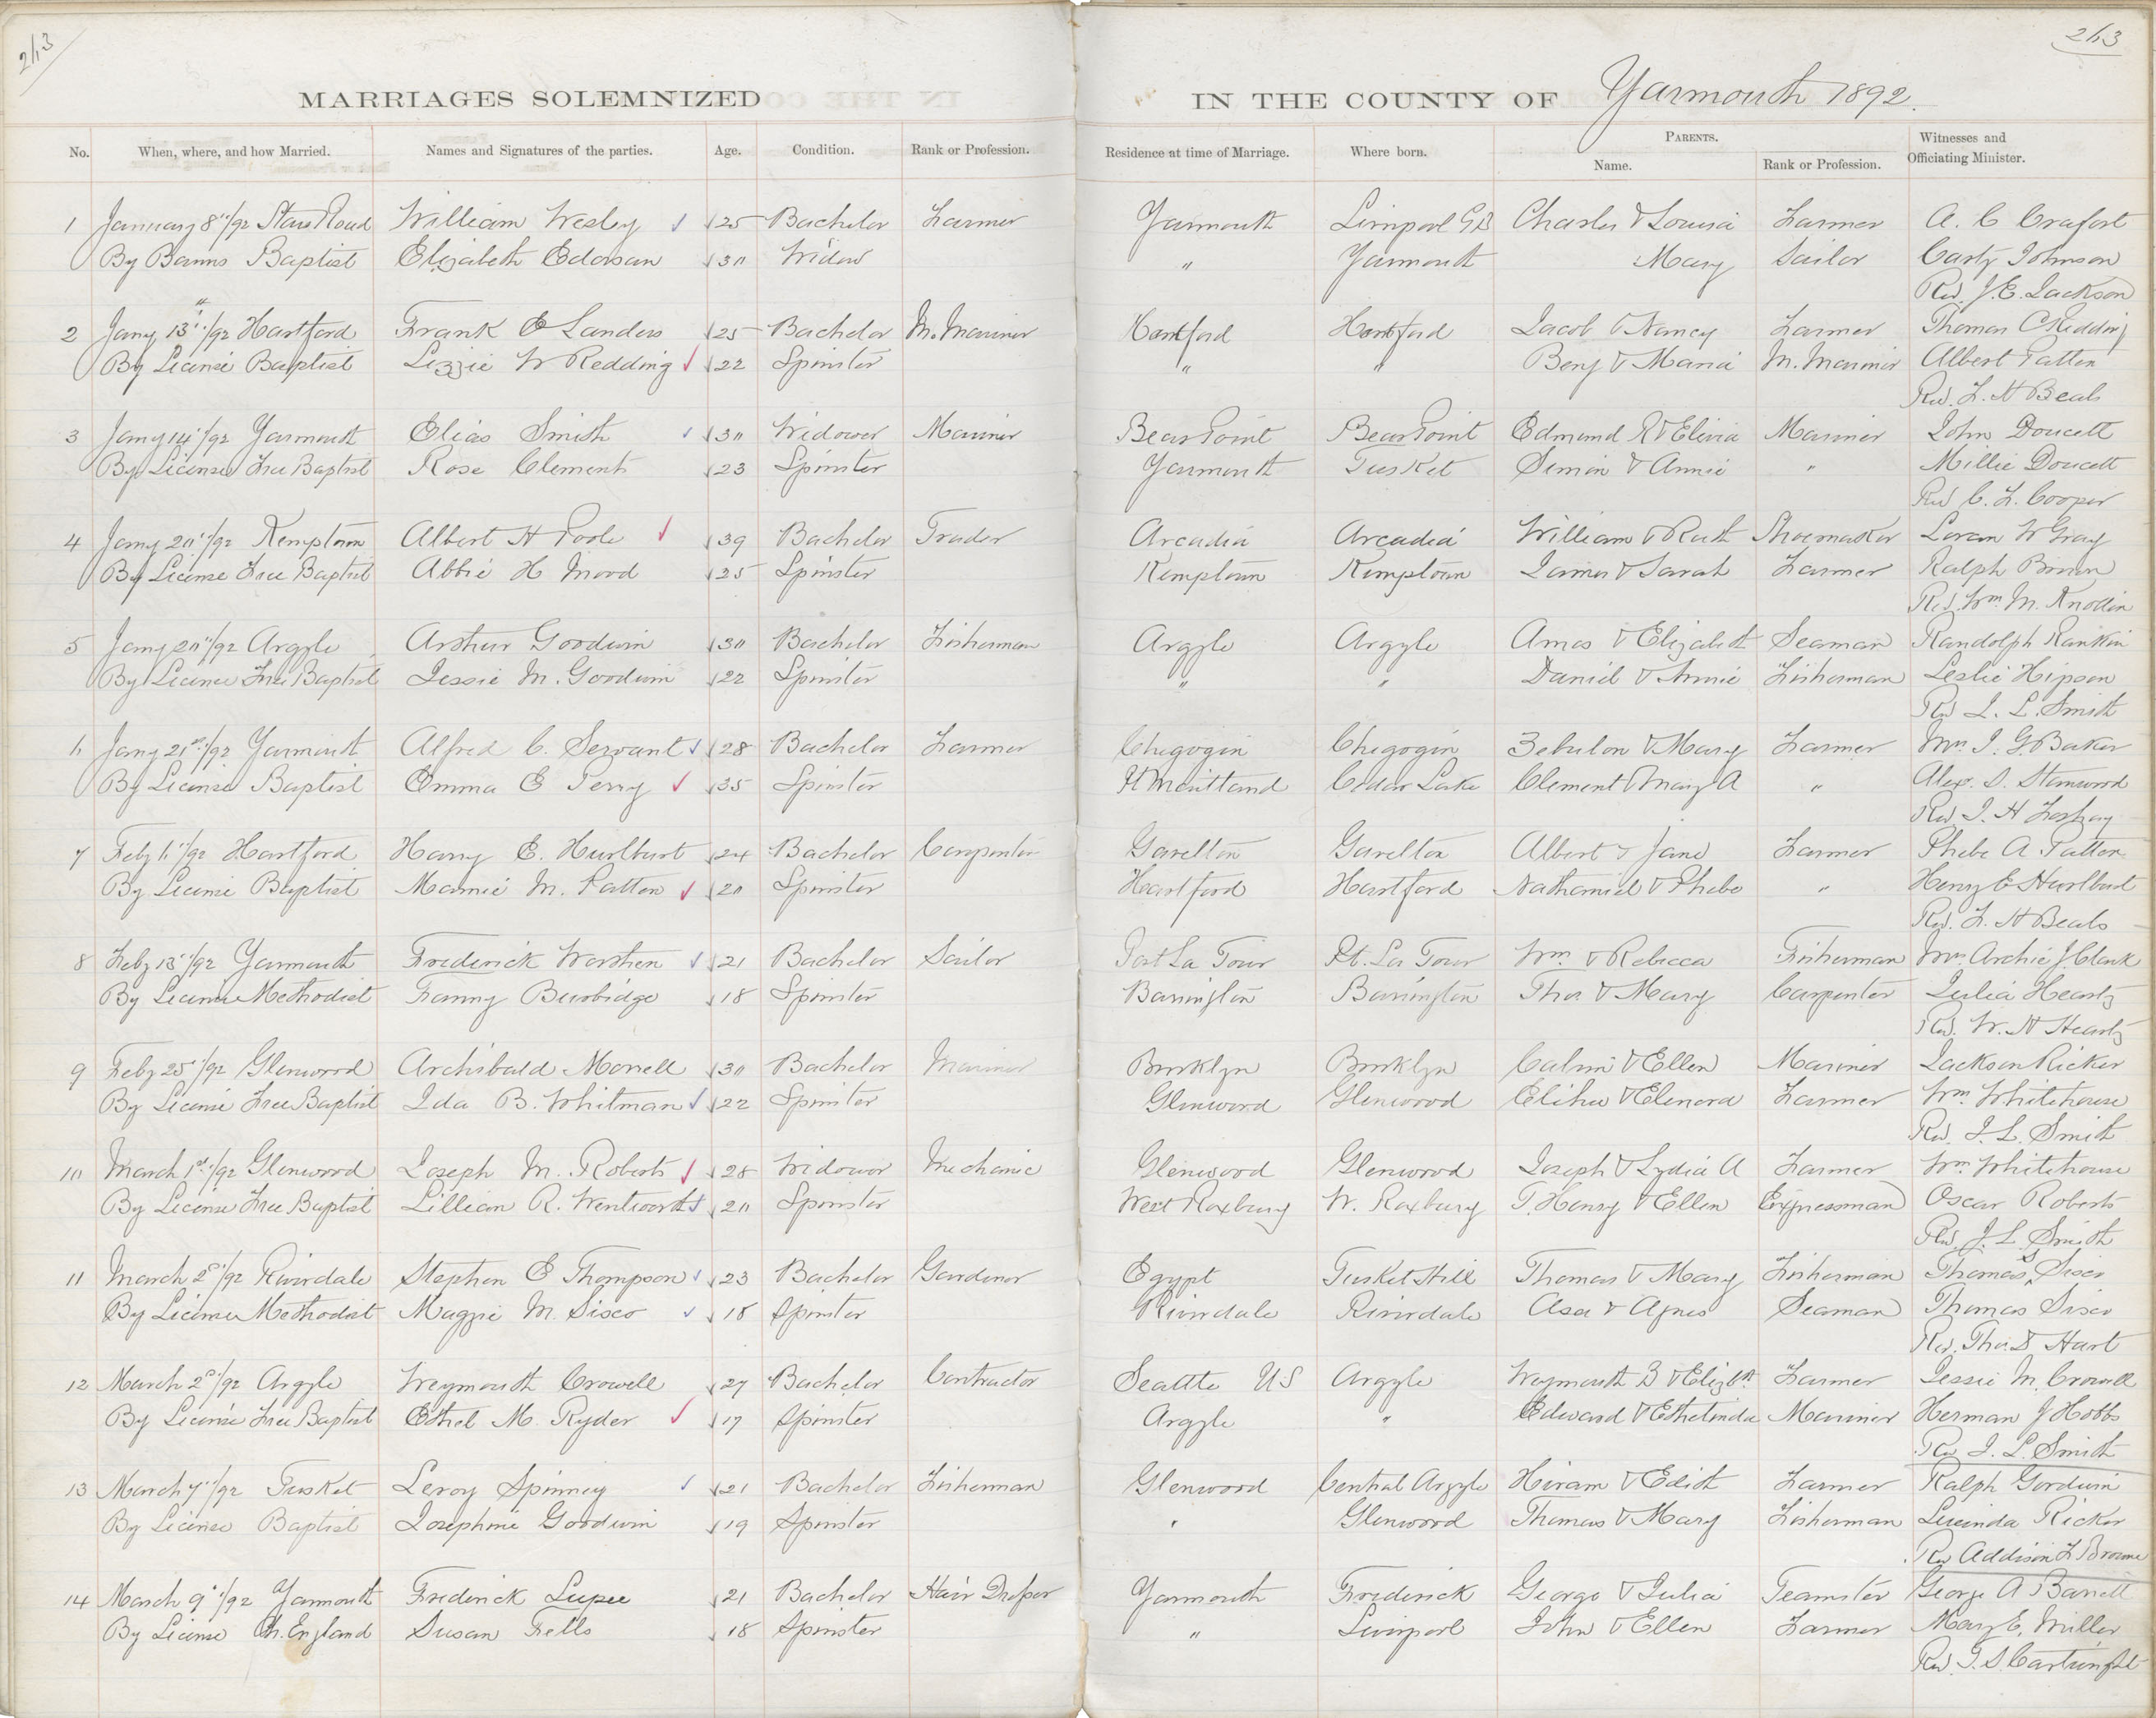 213
213
MARRIAGES SOLEMNIZED IN THE COUNTY OF Yarmouth 1892.
No. When, where, and how Married. Names and Signatures of the parties. Age. Condition. Rank or Profession. Residence at time of Marriage. Where born. PARENTS. Name. Rank or Profession. Witnesses and Officiating Minister.
1 January 8"/92 William Wesley 25 Bachelor Farmer Yarmouth Liverpool G.B Charles & Louisa Farmer A. C Crafort
By Banns Baptist Elizabeth 30 Widow " Yarmouth Mary Sailor Johnson
Rev. J. E. Jackson
2 Jany 13"/92 Hartford Frank E Landers 25 Bachelor M. Mariner Hartford Hartford Jacob & Nancy Farmer Thomas C Redding
By License Baptist Lizzie W Redding 22 Spinster " " Benj & Maria M. Mariner Albert Patten
Rev. F. H Beals
3 Jany 14"/92 Yarmouth Elias Smith 30 Widower Mariner Bear Point Bear Point Edmund R & Mariner John Doucett
By License Free Baptist Rose Clements 23 Spinster Yarmouth Tusket Simon & Annie " Millie Doucett
Rev C. F. Cooper
4 Jany 20"/92 Kemptown Albert H Poole 39 Bachelor Trader Arcadia Arcadia William & Ruth Shoemaker Loran W Gray
By License Free Baptist Abbie H Mood 25 Spinster Kemptown Kemptown James & Sarah Farmer Ralph
Rev. Wm. M. Knollin
5 Jany 20"/92 Argyle Arthur Goodwin 30 Bachelor Fisherman Argyle Argyle Amos & Elizabeth Seaman Randolph Rankin
By License Free Baptist Jessie M. Goodwin 22 Spinster " " Daniel & Annie Fisherman Leslie Hipson
Rev J. L. Smith
6 Jany 21st/92 Yarmouth Alfred C. Servant 28 Bachelor Farmer Chegogin Chegogin Zebulon & Mary Farmer Mrs J. G. Baker
By License Baptist Emma E Perry 35 Spinster Maitland Cedar Lake Clement & Mary A " Alex. S. Stanwood
Rev J. H Foshay
7 Feby 6"/92 Hartford Harry E. Hurlburt 24 Bachelor Carpenter Gavelton Gavelton Albert & Jane Farmer Phebe A. Patten
By License Baptist Mamie M. Patten 20 Spinster Hartford Hartford Nathaniel & Phebe " Henry E Hurlburt
Rev. F. H Beals
8 Feby 13"/92 Yarmouth Frederick 21 Bachelor Sailor Port La Tour Pt. La Tour Wm & Rebecca Fisherman Mrs Archie J. Clark
By License Methodist Fanny Burbidge 18 Spinster Barrington Barrington Thos. & Mary Carpenter Julia Heartz
Rev. W. H Heartz
9 Feby 25"/92 Glenwood Archibald Morrell 30 Bachelor Mariner Brooklyn Brooklyn Calvin & Ellen Mariner Jackson Ricker
By License Free Baptist Ida B. Whitman 22 Spinster Glenwood Glenwood Elihu & Elenora Farmer Wm Whitehouse
Rev. J. L. Smith
10 March 1st/92 Glenwood Joseph M. Roberts 28 Widower Mechanic Glenwood Glenwood Joseph & Lydia A Farmer Wm Whitehouse
By License Free Baptist Lillian R. Wentworth 20 Spinster West Roxbury W. Roxbury T. Henry & Ellen Expressman Oscar Roberts
Rev. J. L Smith
11 March 2d/92 Riverdale Stephen E Thompson 23 Bachelor Gardener Egypt Tusket Hill Thomas & Mary Fisherman Thomas S Sisco
By License Methodist Maggie M. Sisco 18 Spinster Riverdale Riverdale Asa & Agnes Seaman Thomas Sisco
Rev. Thos. D Hart
12 March 2d/92 Argyle Weymouth Crowell 27 Bachelor Contractor Seattle US Argyle Weymouth B & Elizbth Farmer Jessie M. Crowell
By License Free Baptist Ethel M. Ryder 17 Spinster Argyle " Edward & Ethelinda Mariner Herman J Hobbs
Rev J. L. Smith
13 March 7"/92 Tusket Leroy Spinney 21 Bachelor Fisherman Glenwood Central Argyle Hiram & Edith Farmer Ralph Goodwin
By License Baptist Josephine Goodwin 19 Spinster " Glenwood Thomas & Mary Fisherman Lucinda Ricker
Rev Addison F Browne
14 March 9"/92 Yarmouth Frederick Lupee 21 Bachelor Hair Dresser Yarmouth Frederick George & Julia Teamster George A Barrett
By License Ch. England Susan Fells 18 Spinster " Liverpool John & Ellen Farmer Mary E. Miller
Rev. T. S. Cartwright